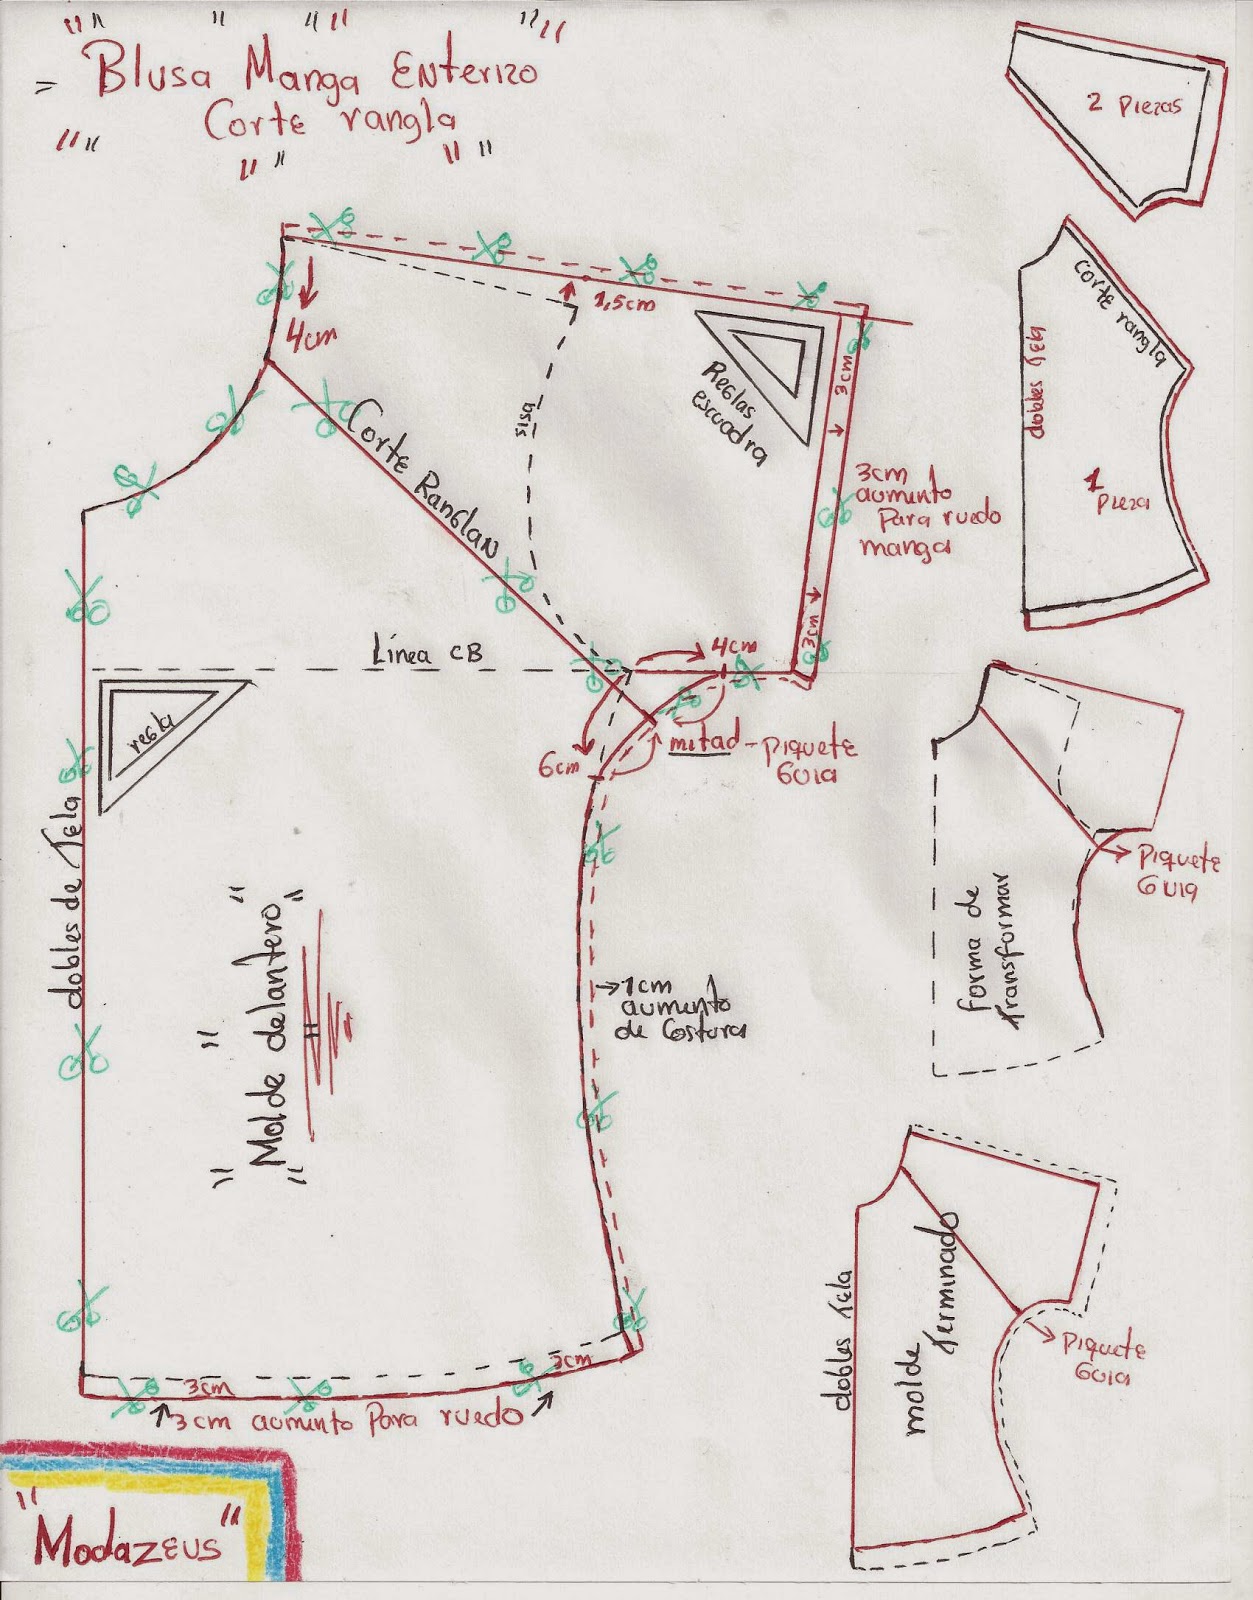 Blusa Manga Enterizo
Corte rangla
2 Piezas
4cm
1,5cm
Corte Ranglan
sisa
Reglas
escuadra
3cm
3cm
3cm
aumento
Para ruedo
manga
corte rangla
dobles tela
1
Pieza
Línea CB
regla
4cm
6cm
mitad - Piquete
Guia
dobles de tela
"Molde delantero"
→1cm
aumento
de Costura
forma de
transformar
Piquete
Guia
3cm
3cm
3 cm aumento Para ruedo
dobles tela
molde terminado
Piquete
Guia
"Modazeus"